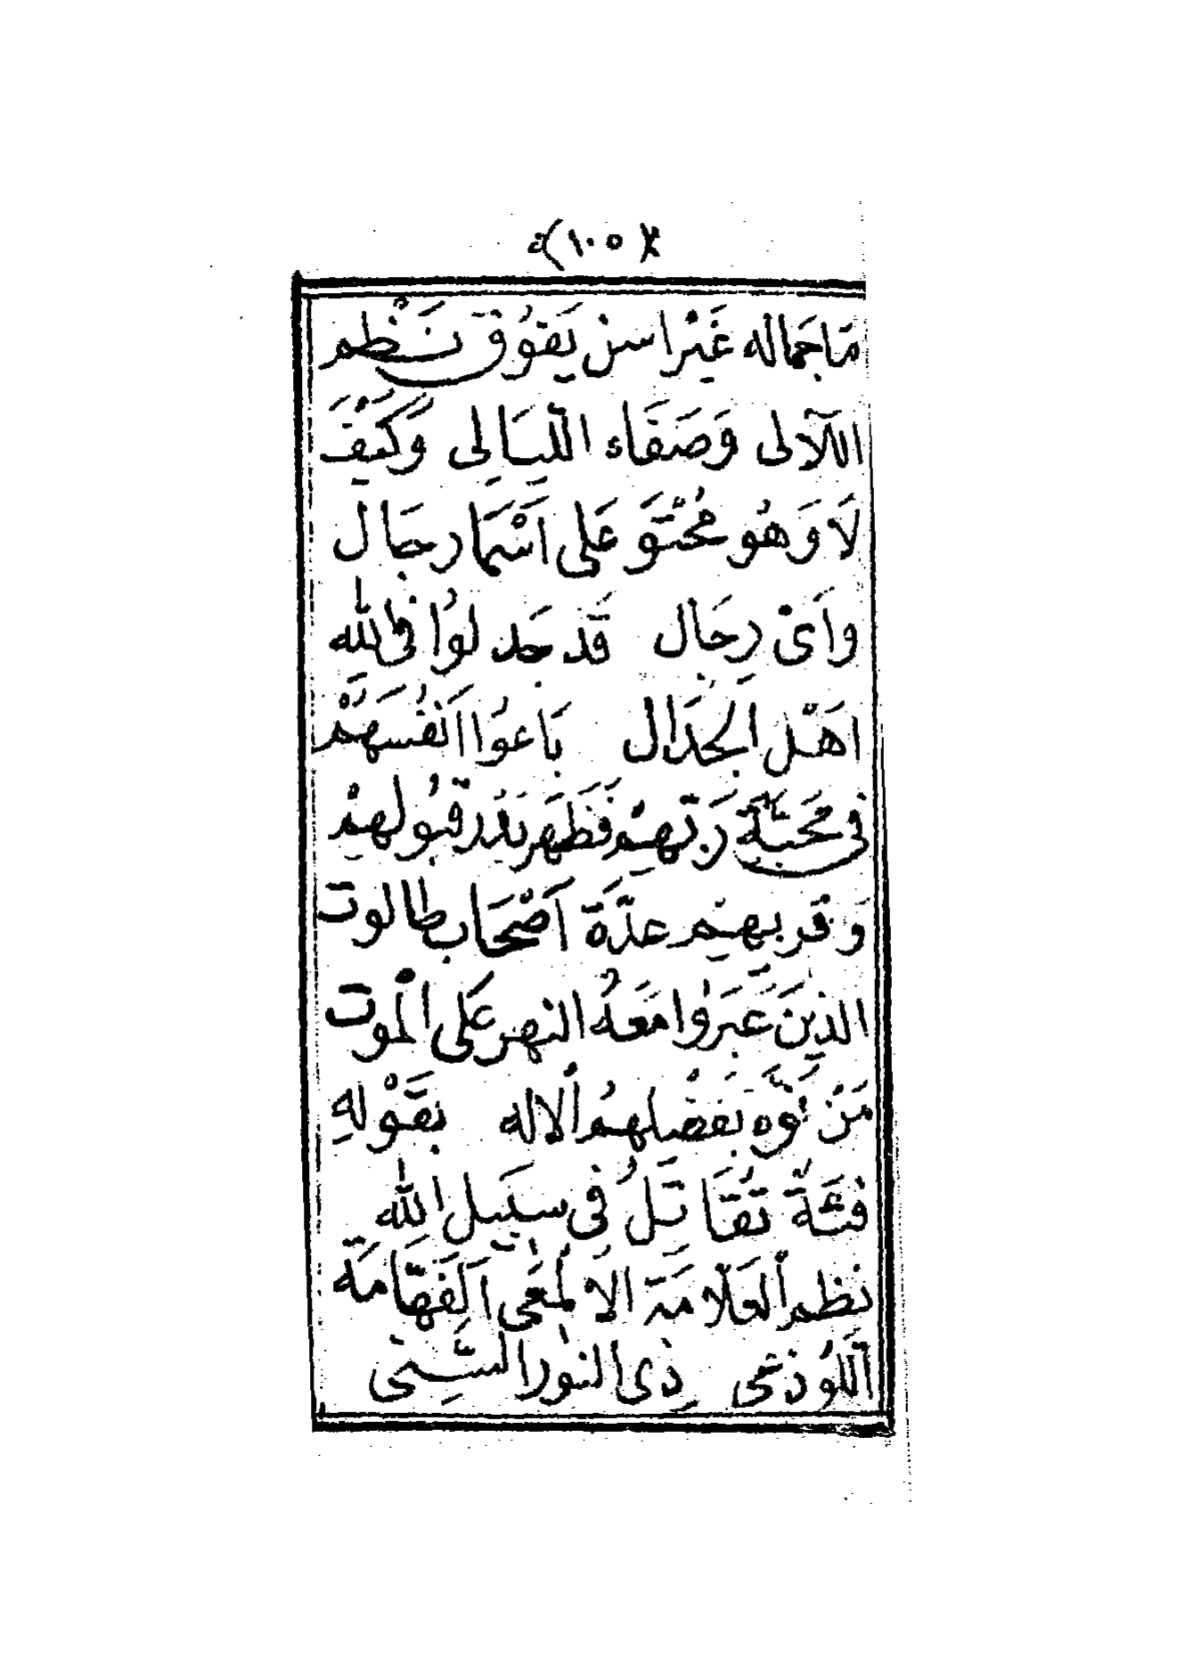 (١٠٥)
مَا جَمَاله غَيْر اسن يَفوُق نَظْم
اللآلى وَصَفَاء اللّيَالِى وَكَيْفَ
لَا وَهُو مُحْتَوَ عَلى اَسْمَا رجَال
واَىّ رِجَال قَد جَدلوُا فى الله
اهَل الجِدَال بَاعوُا اَنْفُسَهَمُ
فى مَحَبَّةِ رَبّهِمْ فَظَهَر بَدْر قبُولهِمْ
وَقربهِم عدّة اَصْحَاب طالوت
الذِينَ عَبَروُا مَعَهُ النهر عَلى الْموت
مَنْ نَوَّه بفَضْلهمُ الاله بقَوْلهِ
فئَةٌ تُقَاتلُ فى سَبِيل اللهِ
نظم العَلّامَة الالْمَعى الفَهّامَة
اللّوُذعى ذِى النوُر السَّنى